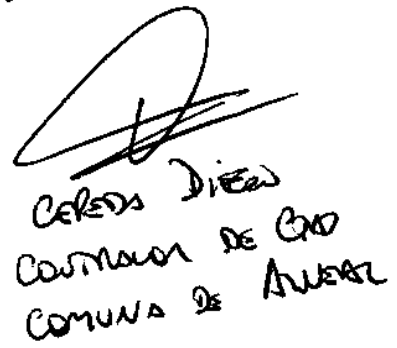 CEREDA DIEGO
CONTRALOR DE CMD
COMUNA DE ALVEAR